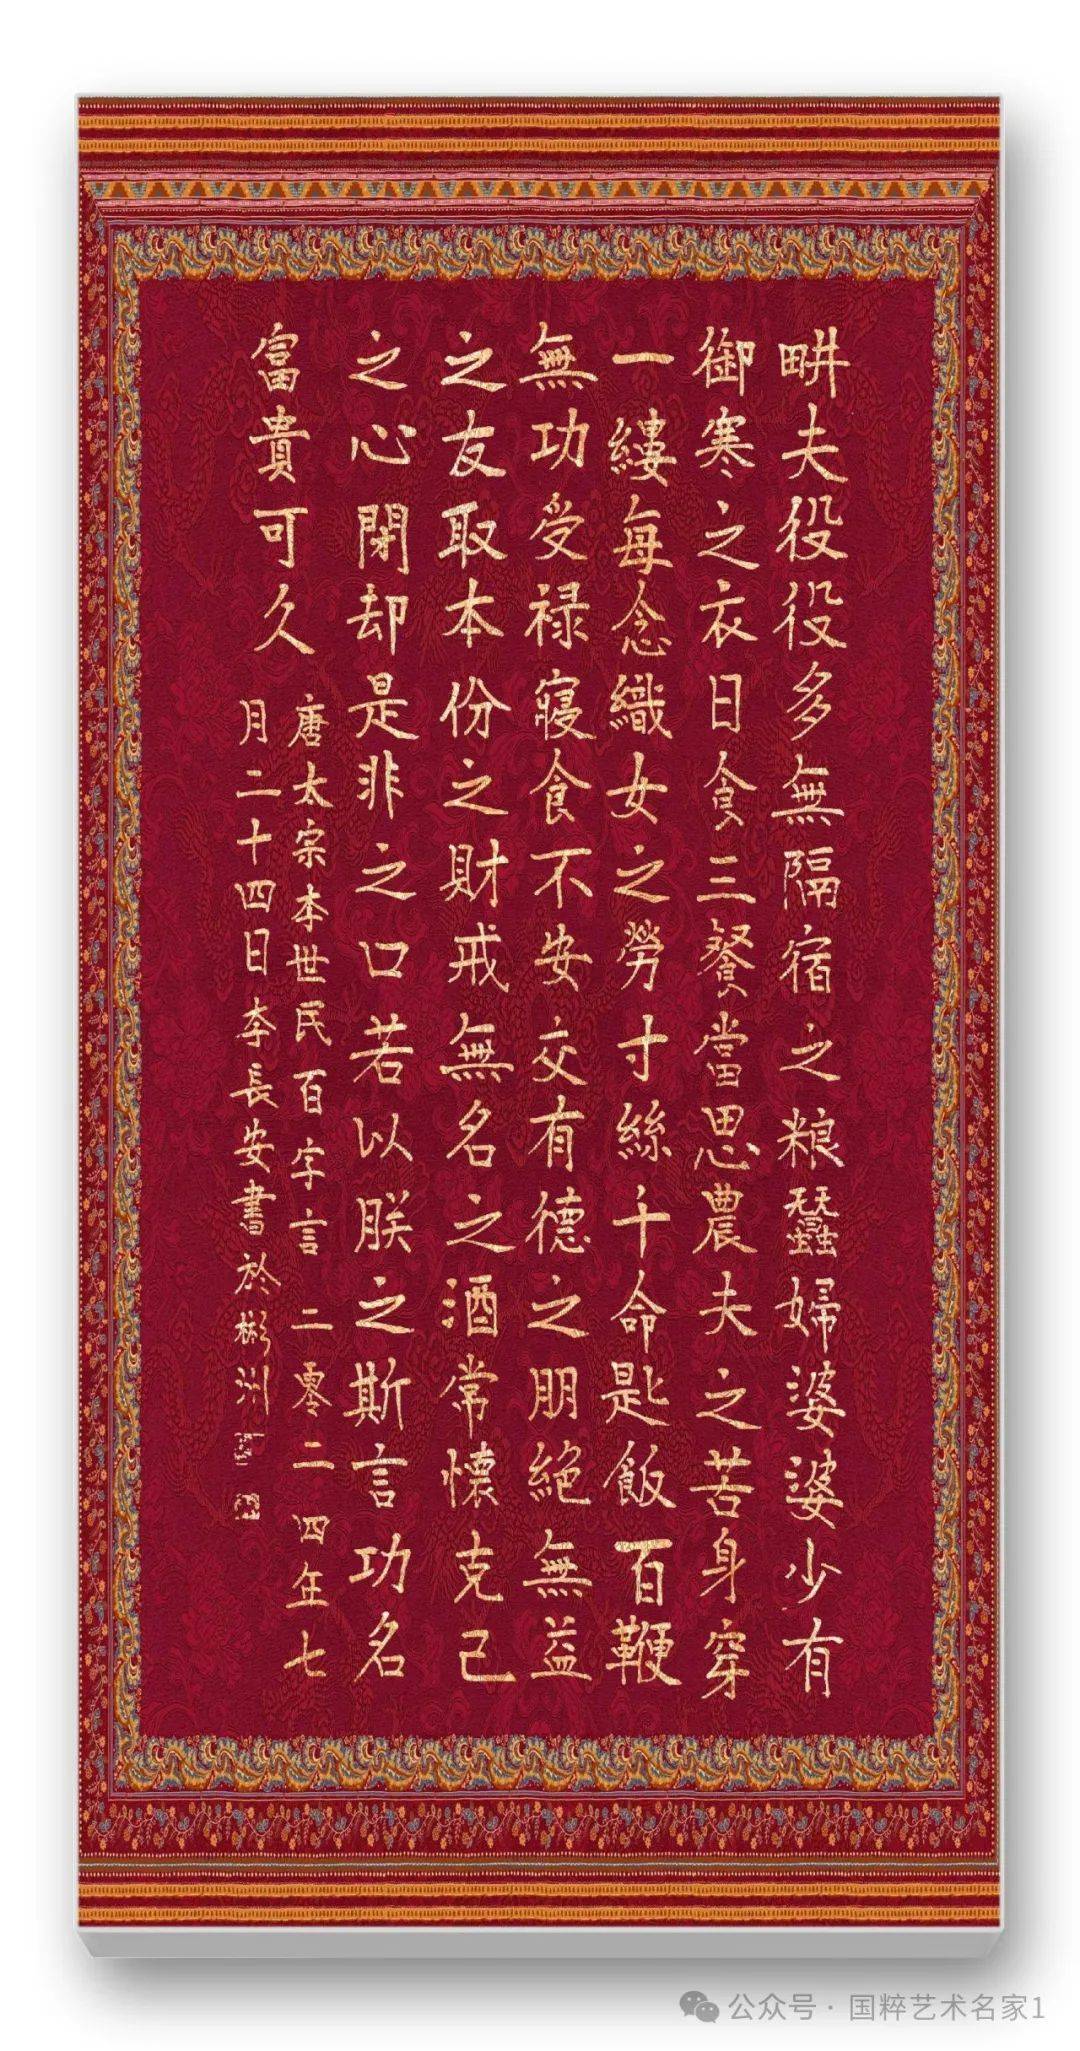 畊夫役役多無隔宿之粮蠶婦婆婆少有
御寒之衣日食三餐當思農夫之苦身穿
一縷每念織女之勞寸絲千命匙飯百鞭
無功受禄寢食不安交有德之朋絕無益
之友取本份之財戒無名之酒常懷克己
之心閉却是非之口若以朕之斯言功名
富貴可久
唐太宗本世民百字言 二零二四年七
月二十四日李長安書於彬州
公众号 · 国粹艺术名家1